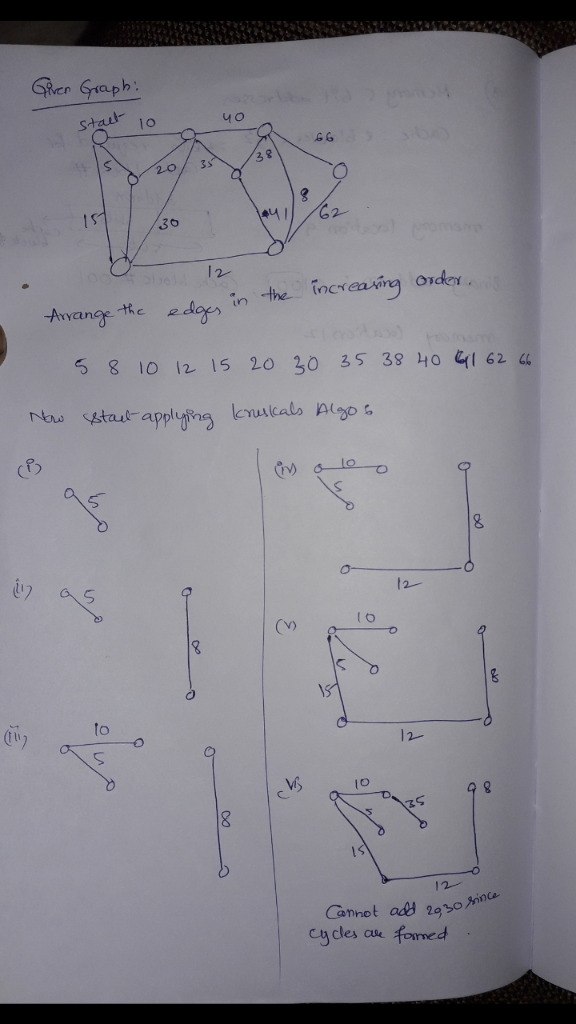 Given Graph:
start 10 40
66
5 20 35 38
15 30 41 8 62
12
Arrange the edges in the increasing order.
5 8 10 12 15 20 30 35 38 40 41 62 66
Now start applying kruskals Algo:
(i)
5
(ii)
5
8
(iii)
10
5
8
(iv)
10
5
8
12
(v)
10
5
15
8
12
(vi)
10
5
35
8
15
12
Cannot add 20,30 since
cycles are formed.